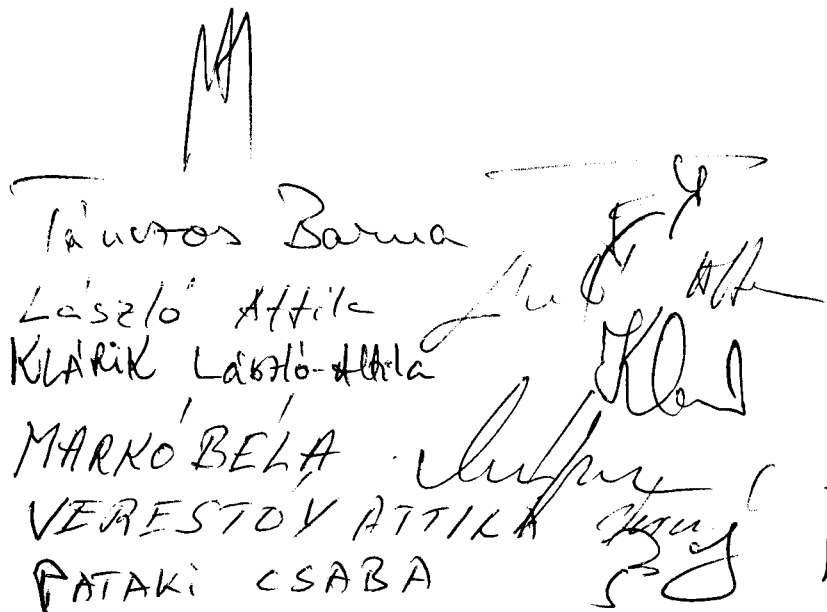 Tánczos Barna
László Attila
KLÁRIK László-Attila
MARKÓ BÉLA
VERESTÓY ATTILA
PATAKI CSABA